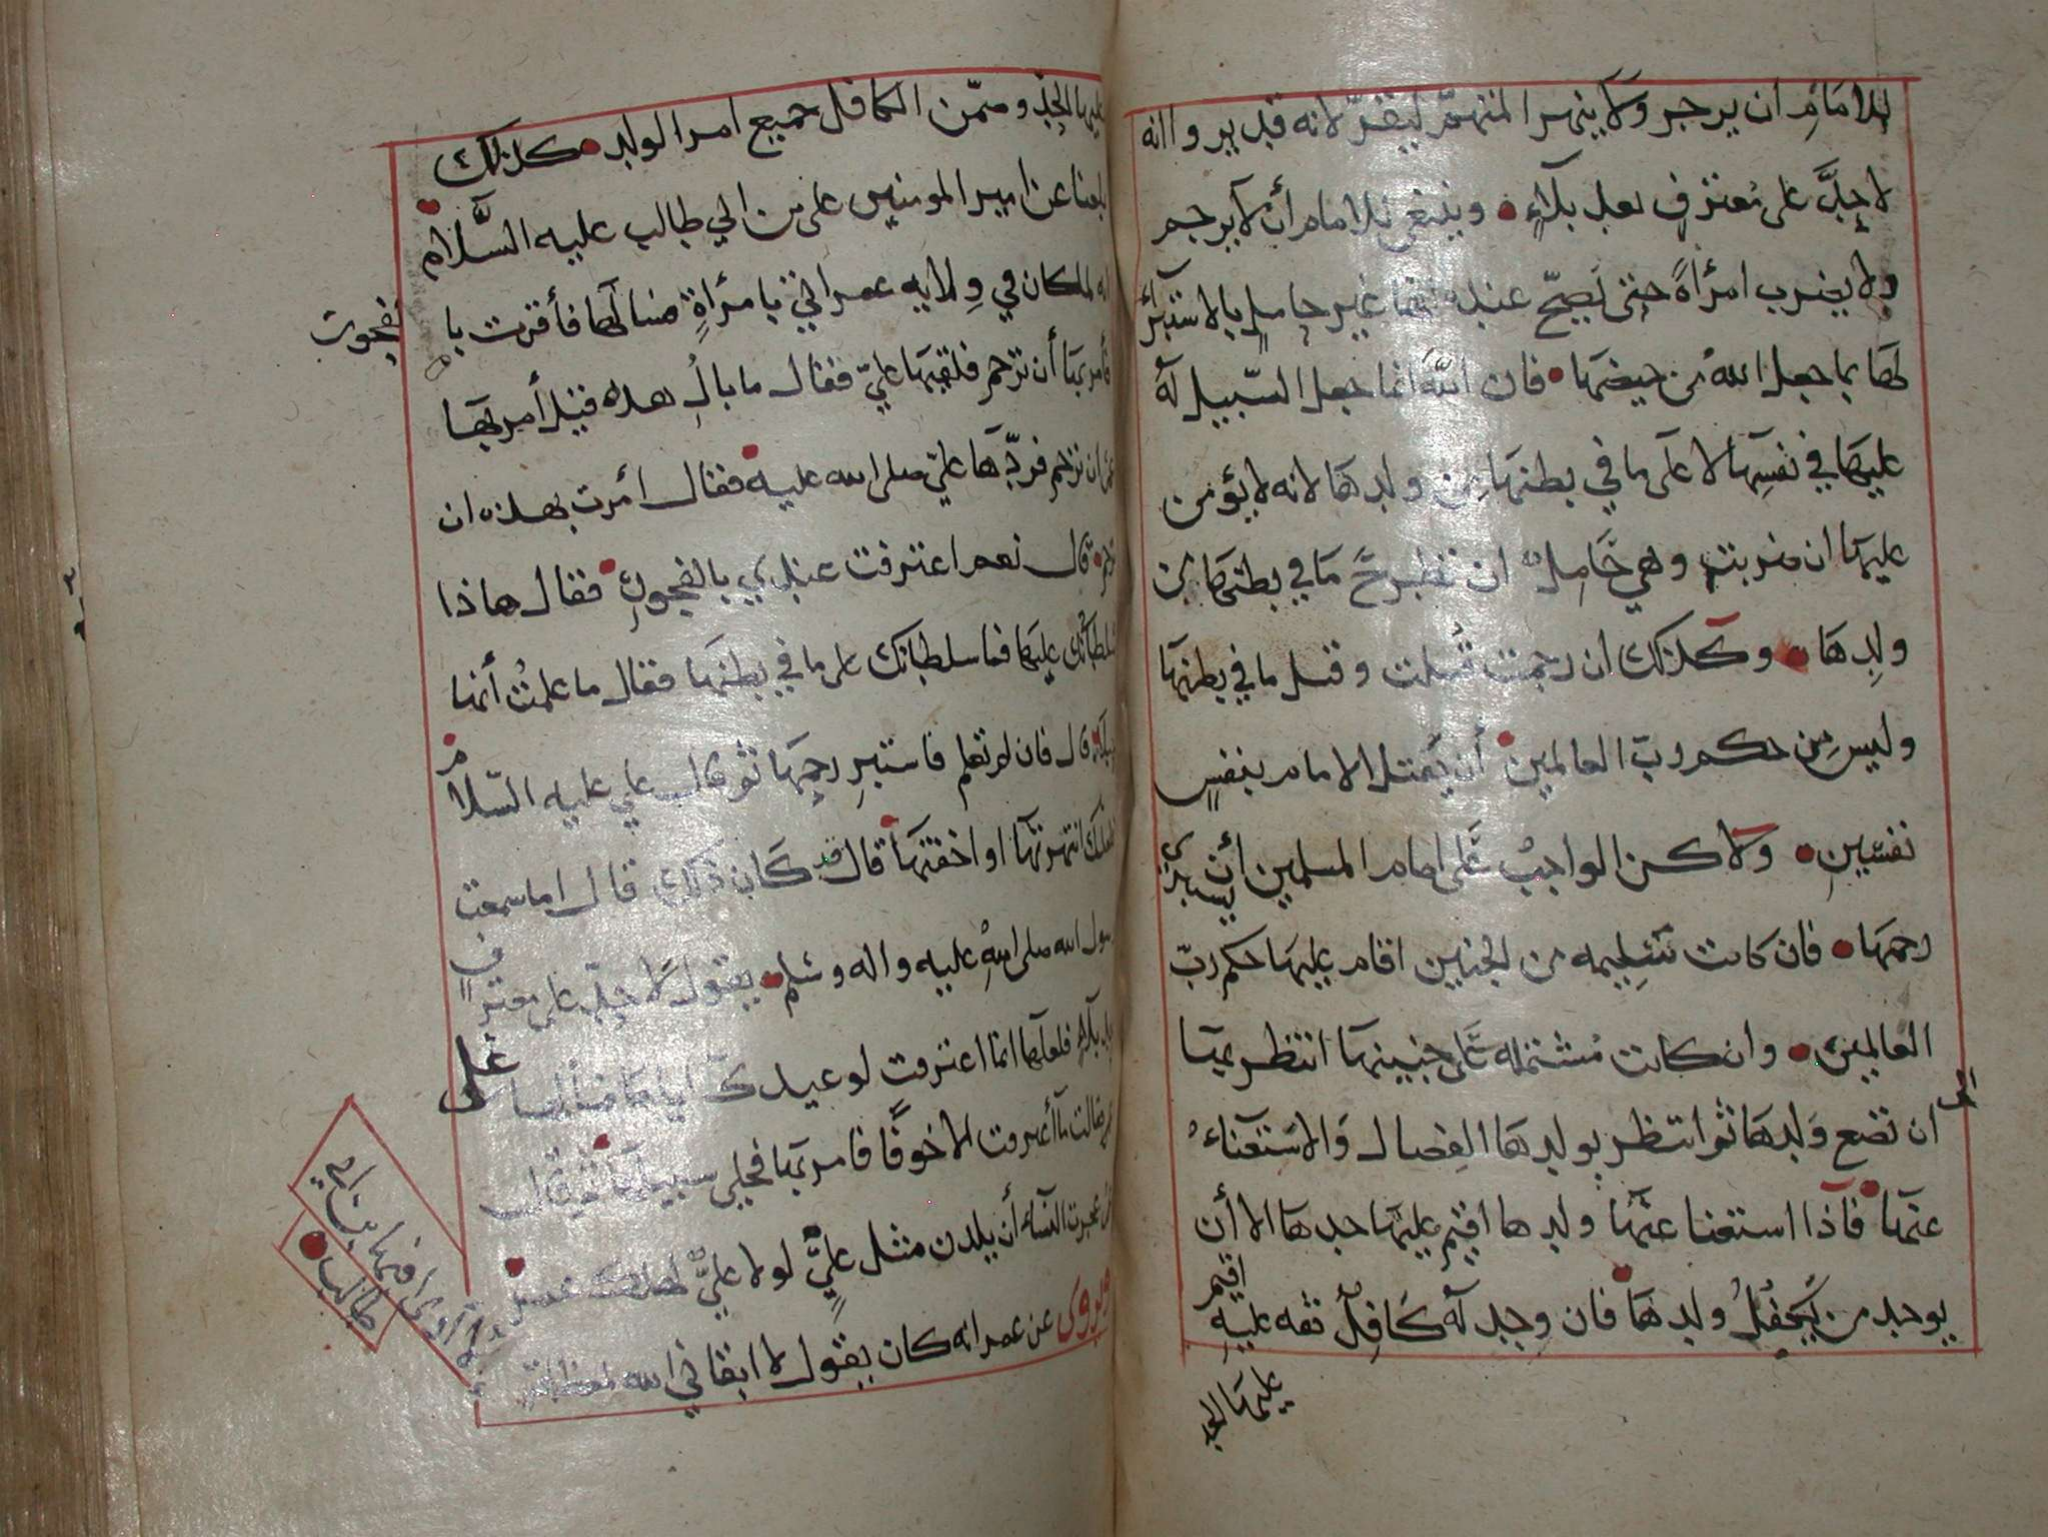 للامام ان يزجر ولا ينهر المتهم ليقر لانه قد يروا انه
لا حدَّ على معترف بعد بلاء • وينبغي للامام أن لا يرجم
ولا يضرب امرأة حتى يصح عنده انها غير حامل بالاستبراء
لها بما جعل الله من حيضها • فان الله انما جعل السبيل له
عليها في نفسها لا على ما في بطنها من ولدها لانه لا يؤمن
عليها ان ضربت وهي حامل ان تطرح ما في بطنها من
ولدها • وكذلك ان رجمت قتلت وقتل ما في بطنها
وليس من حكم رب العالمين أن يقتل الامام بنفس
نفسين • ولاكن الواجب على امام المسلمين أن يستبري
رحمها • فان كانت سليمه من الجنين اقام عليها حكم رب
العالمين • وان كانت مشتمله على جنينها انتظر بها الى
ان تضع ولدها ثم انتظر بولدها الفصال والاستغناء
عنها • فاذا استغنا عنها ولدها اقيم عليها حدها الا أن
يوجد من يكفل ولدها فان وجد له كافل ثقه عليه اقيم
عليها الحد
عليها الحد وضمن الكافل جميع امر الولد • كذلك
بلغنا عن امير المومنين على بن ابي طالب عليه السلام
انه لما كان في ولايه عمر اتي بامرأة فسالها فأقرت با
لفجور
فأمر بها أن ترجم فلقيها علي فقال ما بال هذه فقيل أمر بها
عمر ان ترجم فردها علي صلى الله عليه • فقال أمرت بهذه ان
ترجم • قال نعم اعترفت عندي بالفجور • فقال هاذا
سلطانك عليها فما سلطانك على ما في بطنها فقال ما علمت أنها
حبلا • قال فان لم تعلم فاستبر رحمها ثم قال علي عليه السلام
فلعلك انتهرتها او اخفتها • قال قد كان ذلك قال اما سمعت
رسول الله صلى الله عليه واله وسلم • يقول لا حد على معترف
بعد بلاء فلعلها انما اعترفت لوعيدك اياها فسألها علي
فقالت ما أعترفت الا خوفا فامر بها فخلي سبيلها • ثم قال
عمر عجزت النساء أن يلدن مثل علي لولا علي لهلك عمر •
ويروى عن عمر انه كان يقول لا ابقاني الله لمعضلة
لا أرى فيها ابن ابي
طالب •